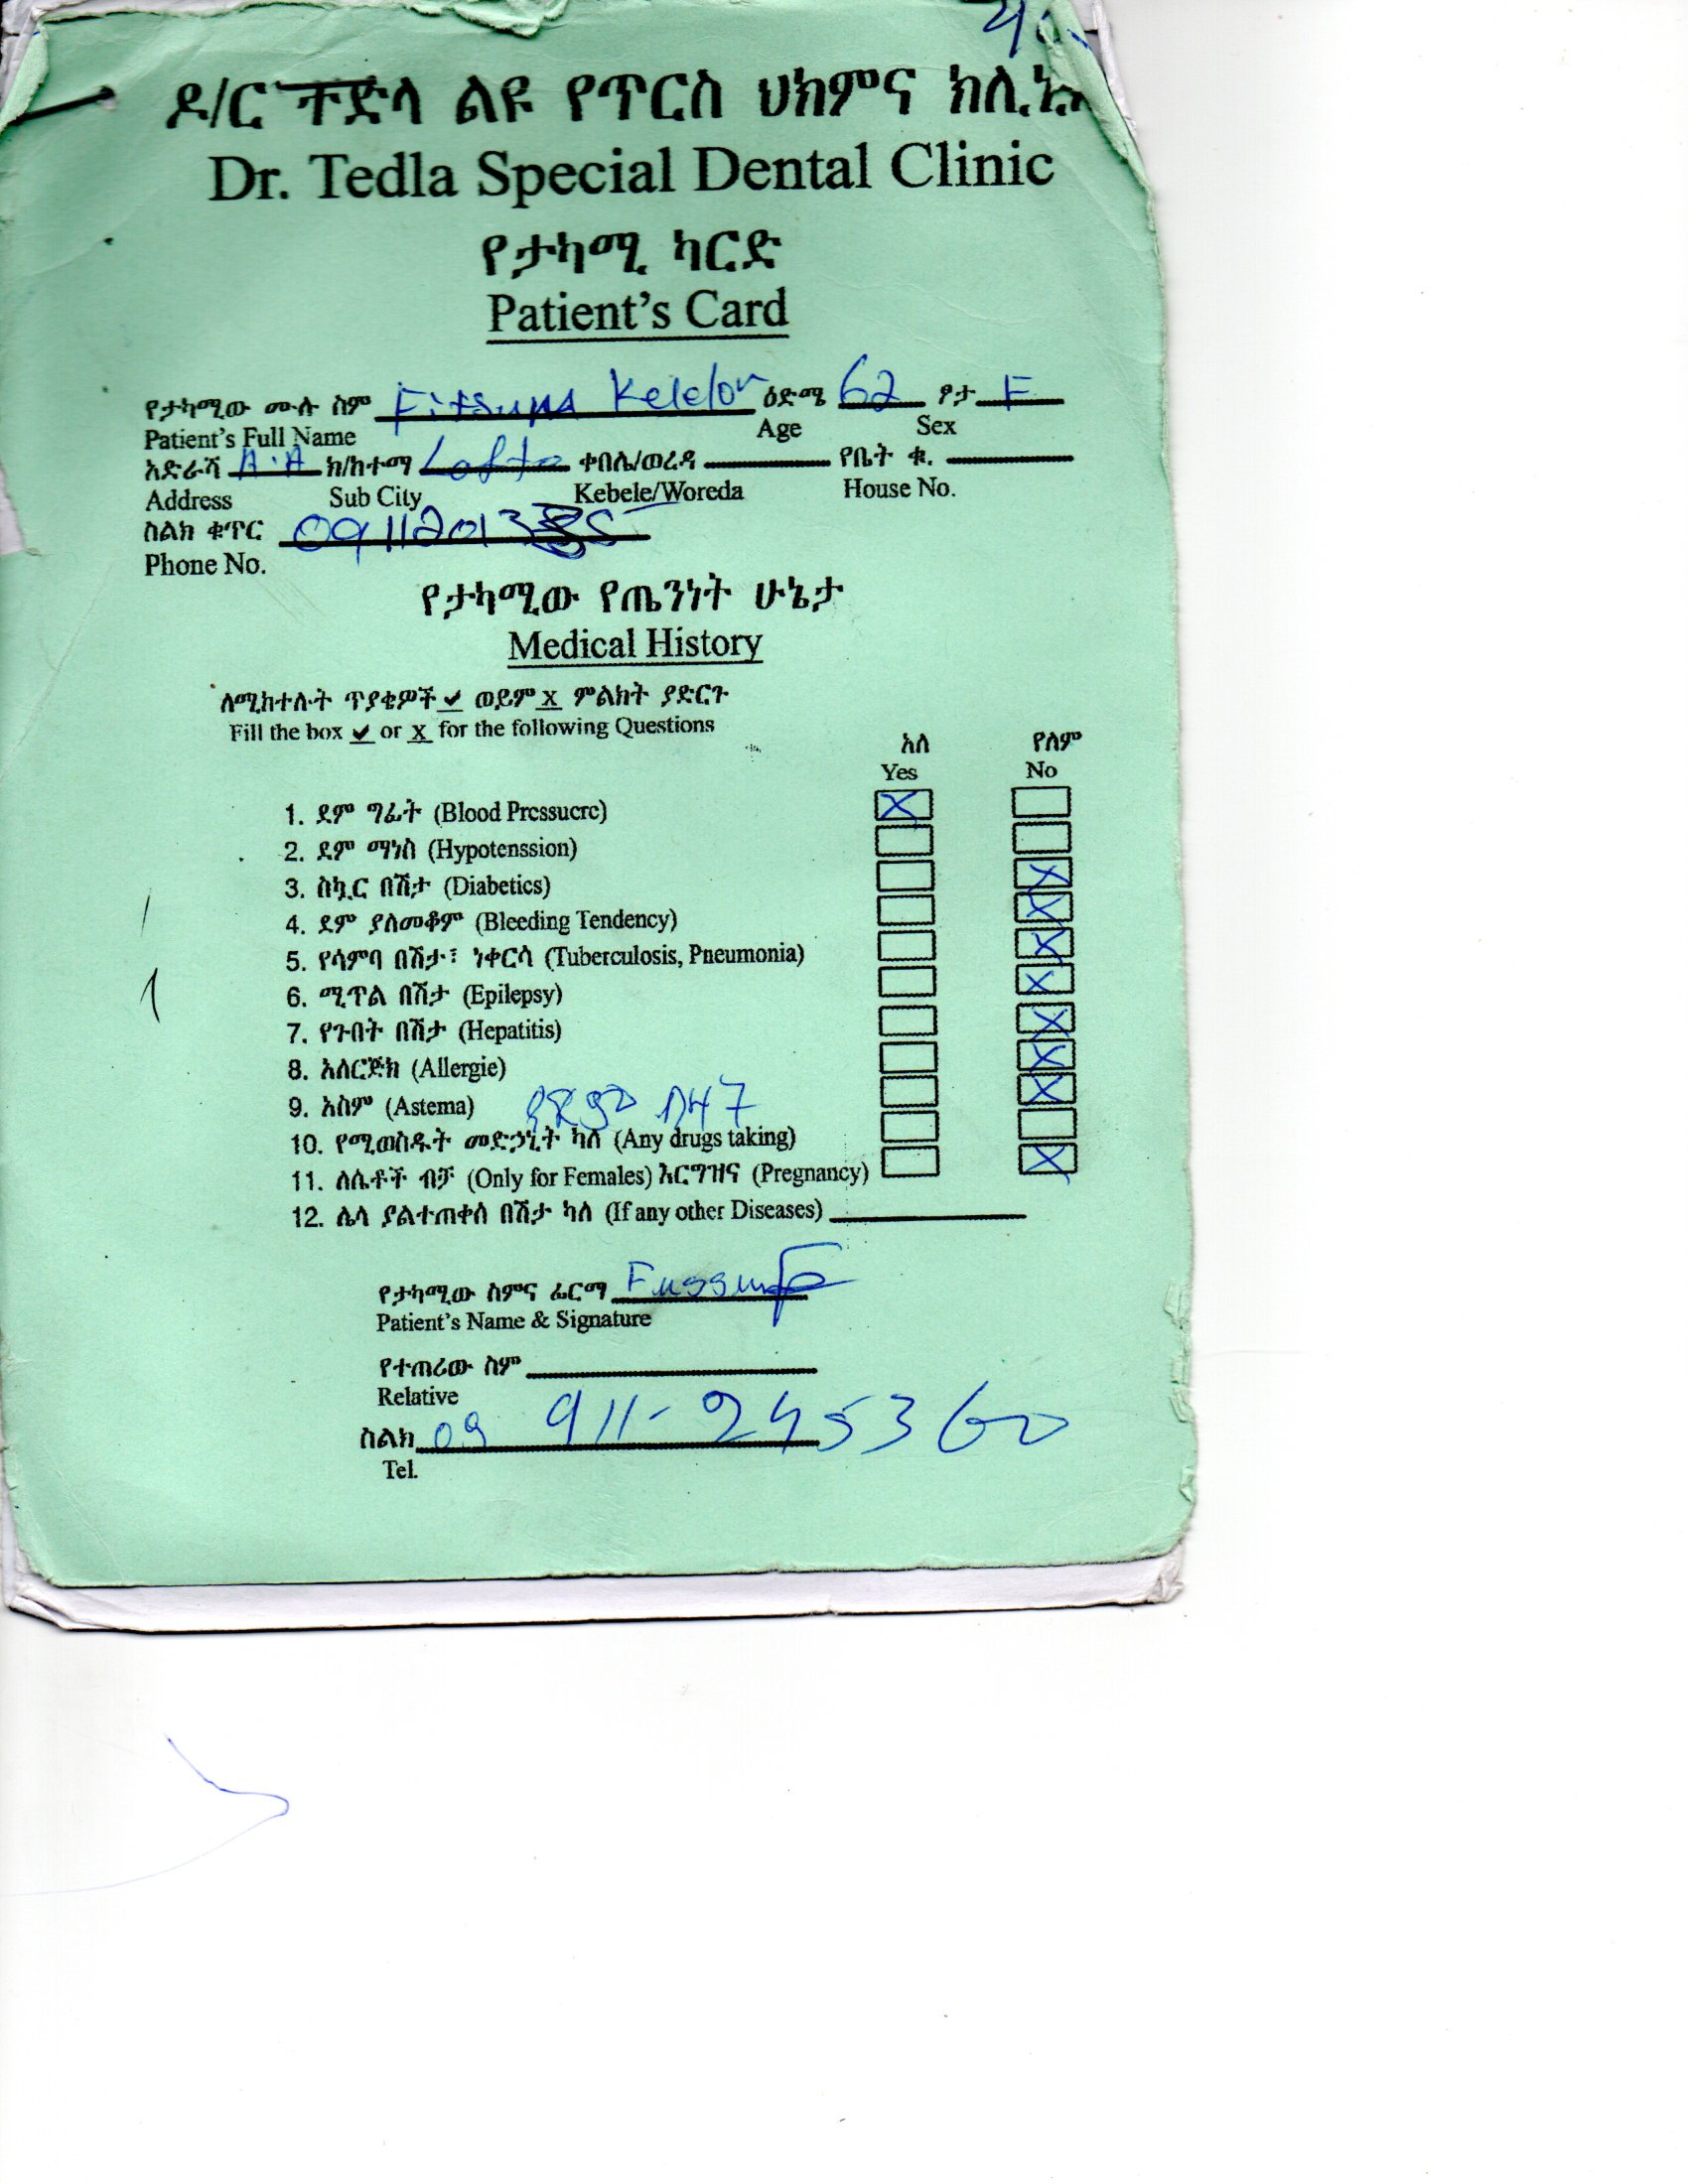 ዶ/ር ቴድላ ልዩ የጥርስ ህክምና ክሊኒክ
Dr. Tedla Special Dental Clinic
የታካሚ ካርድ
Patient's Card
የታካሚው ሙሉ ስም ዕድሜ 62 ፆታ F
Patient's Full Name Age Sex
አድራሻ A.A ክ/ከተማ Lafto ቀበሌ/ወረዳ የቤት ቁ.
Address Sub City Kebele/Woreda House No.
ስልክ ቁጥር
Phone No.
የታካሚው የጤንነት ሁኔታ
Medical History
ለሚከተሉት ጥያቄዎች ✔ ወይም X ምልክት ያድርጉ
Fill the box ✔ or X for the following Questions
አለ የለም
Yes No
1. ደም ግፊት (Blood Pressucre) X
2. ደም ማነስ (Hypotenssion)
3. ስኳር በሽታ (Diabetics) X
4. ደም ያለመቆም (Bleeding Tendency) X
5. የሳምባ በሽታ፣ ነቀርሳ (Tuberculosis, Pneumonia) X
6. ሚጥል በሽታ (Epilepsy) X
7. የጉበት በሽታ (Hepatitis) X
8. አለርጅክ (Allergie) X
9. አስም (Astema) X
10. የሚወስዱት መድኃኒት ካለ (Any drugs taking)
11. ለሴቶች ብቻ (Only for Females) እርግዝና (Pregnancy) X
12. ሌላ ያልተጠቀሰ በሽታ ካለ (If any other Diseases)
የታካሚው ስምና ፊርማ
Patient's Name & Signature
የተጠሪው ስም
Relative
ስልክ 09 911-245360
Tel.